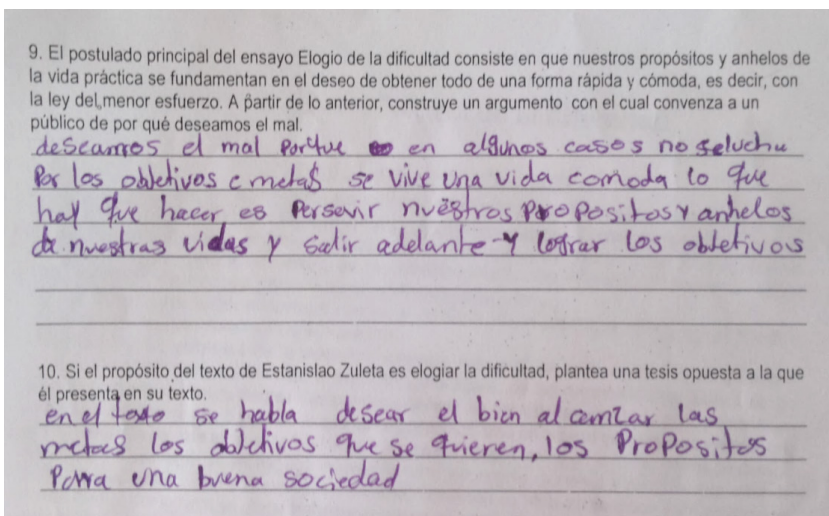 9. El postulado principal del ensayo Elogio de la dificultad consiste en que nuestros propósitos y anhelos de
la vida práctica se fundamentan en el deseo de obtener todo de una forma rápida y cómoda, es decir, con
la ley del menor esfuerzo. A partir de lo anterior, construye un argumento con el cual convenza a un
público de por qué deseamos el mal.
deseamos el mal porque en algunos casos no se lucha
Por los objetivos e metas se vive una vida comoda lo que
hay que hacer es persevir nuestros propositos y anhelos
de nuestras vidas y salir adelante y lograr los objetivos
10. Si el propósito del texto de Estanislao Zuleta es elogiar la dificultad, plantea una tesis opuesta a la que
él presenta en su texto.
en el se habla desear el bien alcanzar las
metas los objetivos que se quieren, los Propositos
Para una buena sociedad